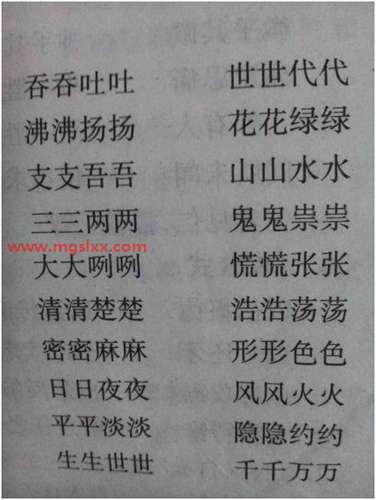 吞吞吐吐 世世代代
沸沸扬扬 花花绿绿
支支吾吾 山山水水
三三两两 鬼鬼祟祟
www.mgslxx.com
大大咧咧 慌慌张张
清清楚楚 浩浩荡荡
密密麻麻 形形色色
日日夜夜 风风火火
平平淡淡 隐隐约约
生生世世 千千万万